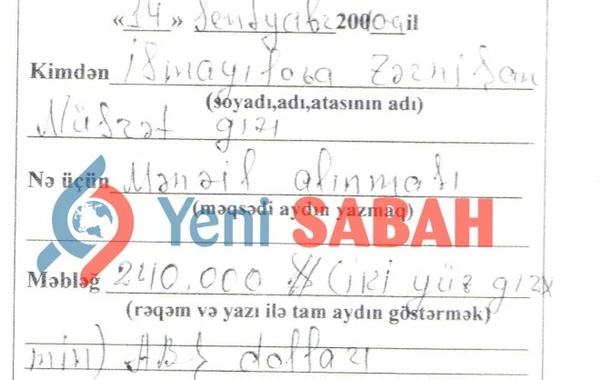 «14» Sentyabr 2009 il
Kimdən İsmayılova Zərnişan
(soyadı,adı,atasının adı)
Nüsrət qızı
Nə üçün Mənzil alınması
(məqsədi aydın yazmaq)
Yeni SABAH
Məbləğ 240.000 $ (iki yüz qırx
(rəqəm və yazı ilə tam aydın göstərmək)
min) ABŞ dolları